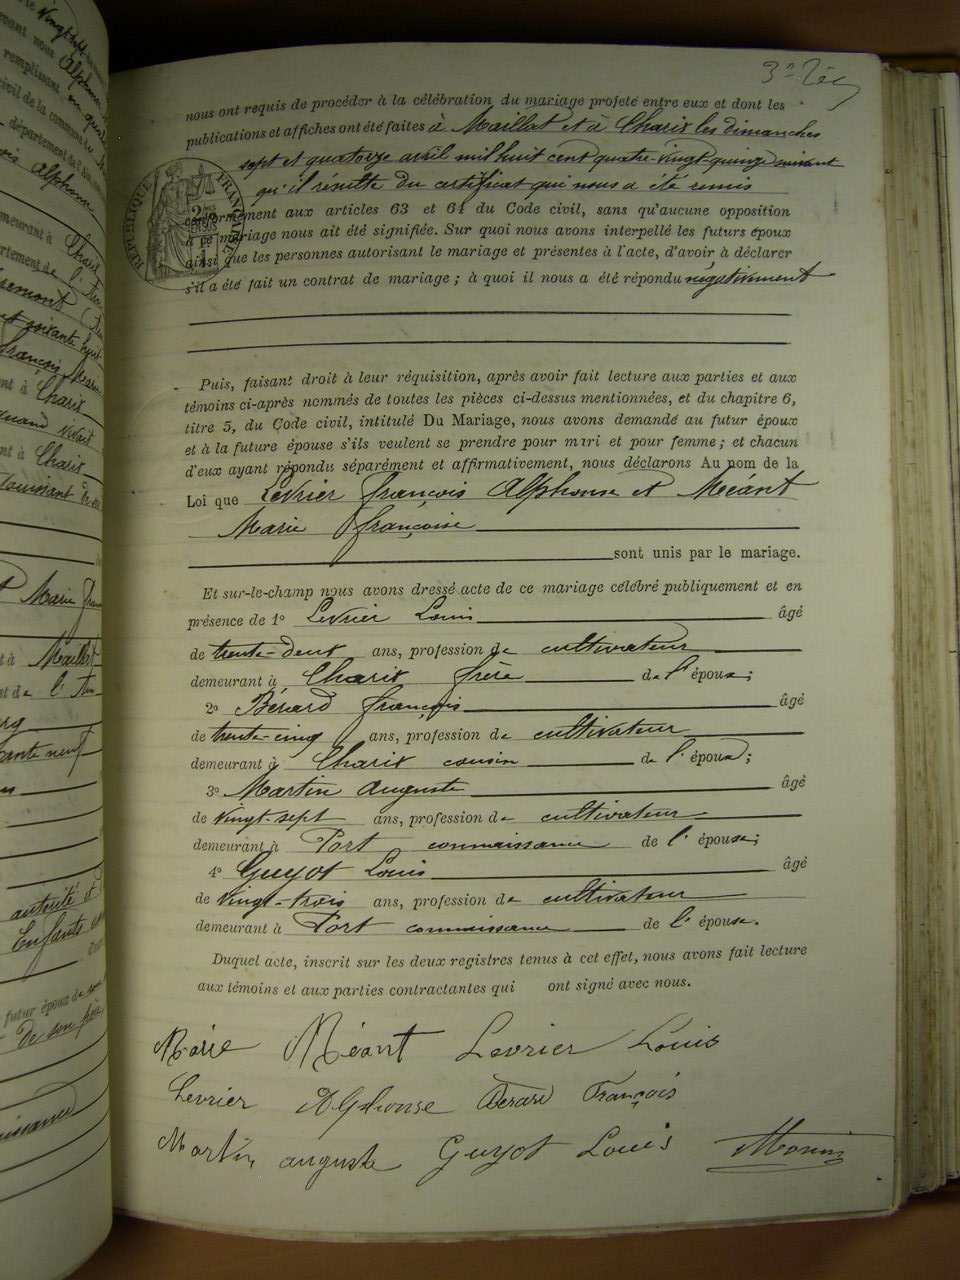 Vingt huit
Alphonse
remplissant
civil de la commune
département de l'Ain
Alphonse
demeurant à Charix
département de l'Ain
soixante huit
François Marie
à Charix
quand vivait
à Charix
Toussaint
Marie
à Maillat
de l'Ain
autorité
Enfants
futur époux de son
De son père
3e Rec
nous ont requis de procéder à la célébration du mariage projeté entre eux et dont les
publications et affiches ont été faites à Maillat et à Charix les dimanches
sept et quatorze avril mil huit cent quatre-vingt-quinze suivant
qu'il résulte du certificat qui nous a été remis
conformément aux articles 63 et 64 du Code civil, sans qu'aucune opposition
à ce mariage nous ait été signifiée. Sur quoi nous avons interpellé les futurs époux
ainsi que les personnes autorisant le mariage et présentes à l'acte, d'avoir à déclarer
s'il a été fait un contrat de mariage ; à quoi il nous a été répondu négativement
RÉPUBLIQUE FRANÇAISE
Puis, faisant droit à leur réquisition, après avoir fait lecture aux parties et aux
témoins ci-après nommés de toutes les pièces ci-dessus mentionnées, et du chapitre 6,
titre 5, du Code civil, intitulé Du Mariage, nous avons demandé au futur époux
et à la future épouse s'ils veulent se prendre pour mari et pour femme ; et chacun
d'eux ayant répondu séparément et affirmativement, nous déclarons Au nom de la
Loi que Levrier François Alphonse et Méant
Marie Françoise
sont unis par le mariage.
Et sur-le-champ nous avons dressé acte de ce mariage célébré publiquement et en
présence de 1º Levrier Louis âgé
de trente-deux ans, profession de cultivateur
demeurant à Charix frère de l'époux ;
2º Bérard François âgé
de trente-cinq ans, profession de cultivateur
demeurant à Charix cousin de l'époux ;
3º Martin Auguste âgé
de vingt-sept ans, profession de cultivateur
demeurant à Port connaissance de l'épouse ;
4º Guyot Louis âgé
de vingt-trois ans, profession de cultivateur
demeurant à Port connaissance de l'épouse.
Duquel acte, inscrit sur les deux registres tenus à cet effet, nous avons fait lecture
aux témoins et aux parties contractantes qui ont signé avec nous.
Marie Méant Levrier Louis
Levrier Alphonse Berard François
Martin auguste Guyot Louis